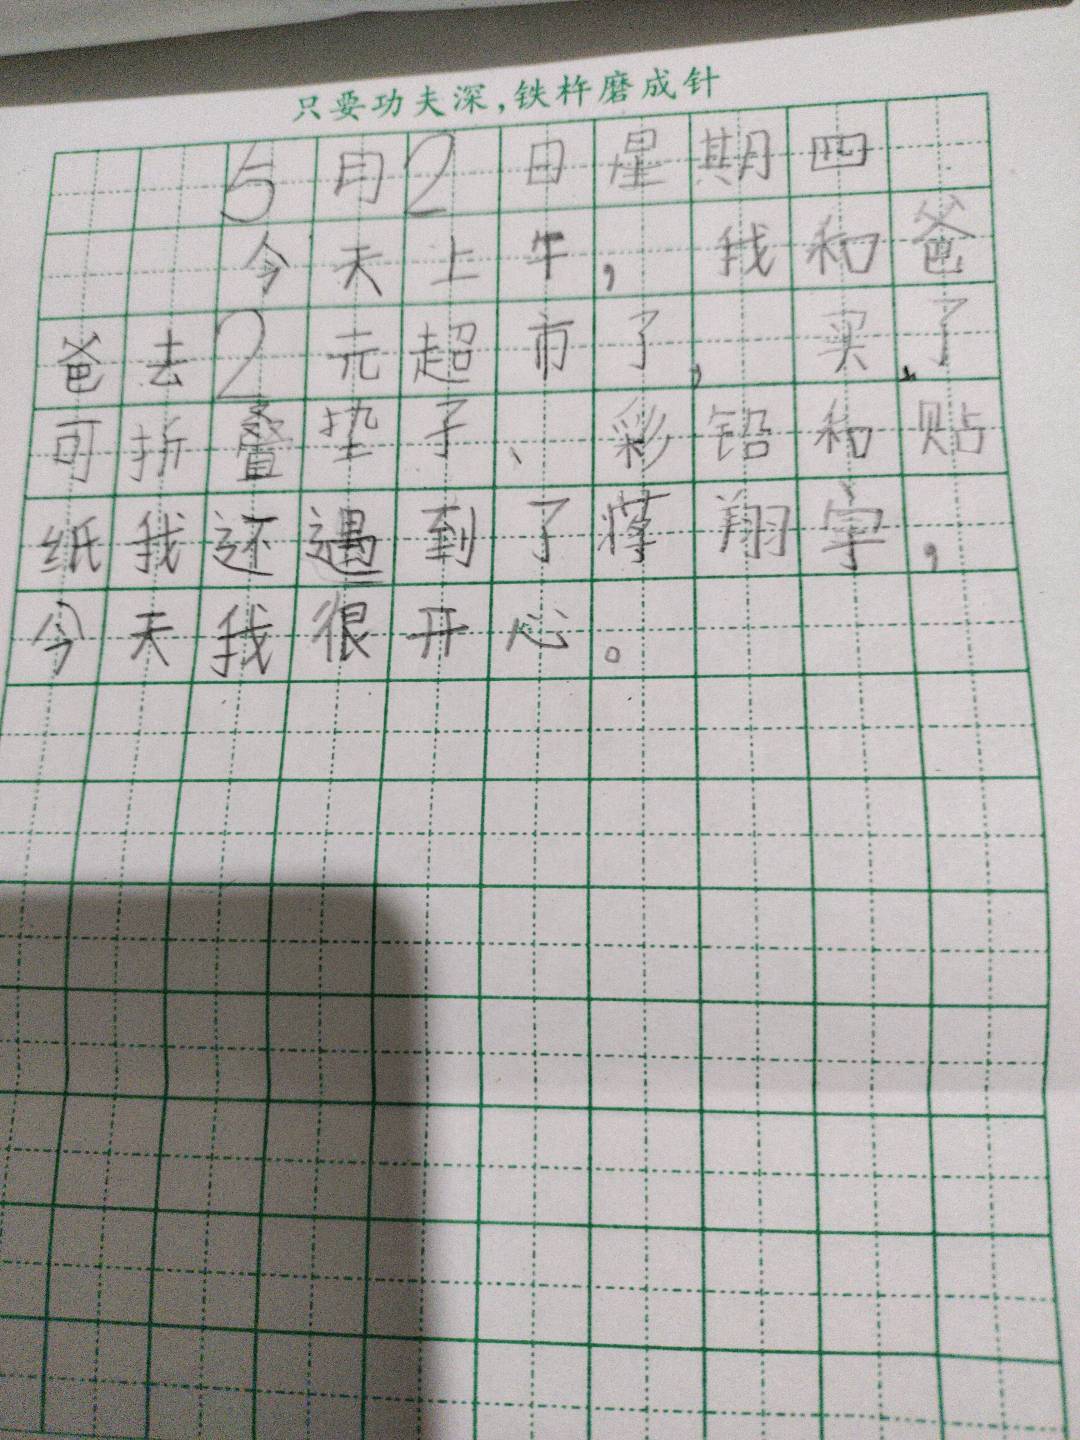 只要功夫深,铁杵磨成针
5月2日星期四
今天上午,我和爸
爸去2元超市了,买了
可折叠垫子、彩铅和贴
纸我还遇到了蒋翔宇,
今天我很开心。